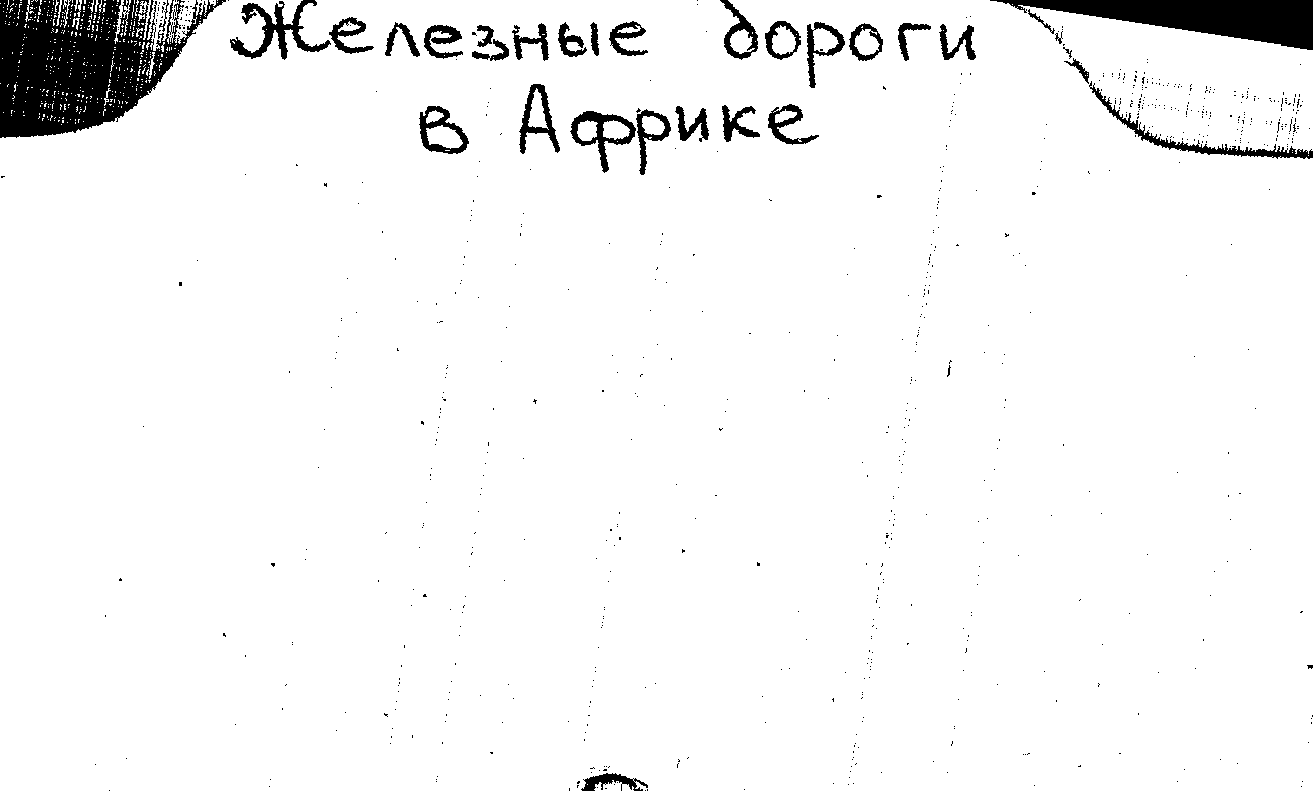 Железные дороги
в Африке